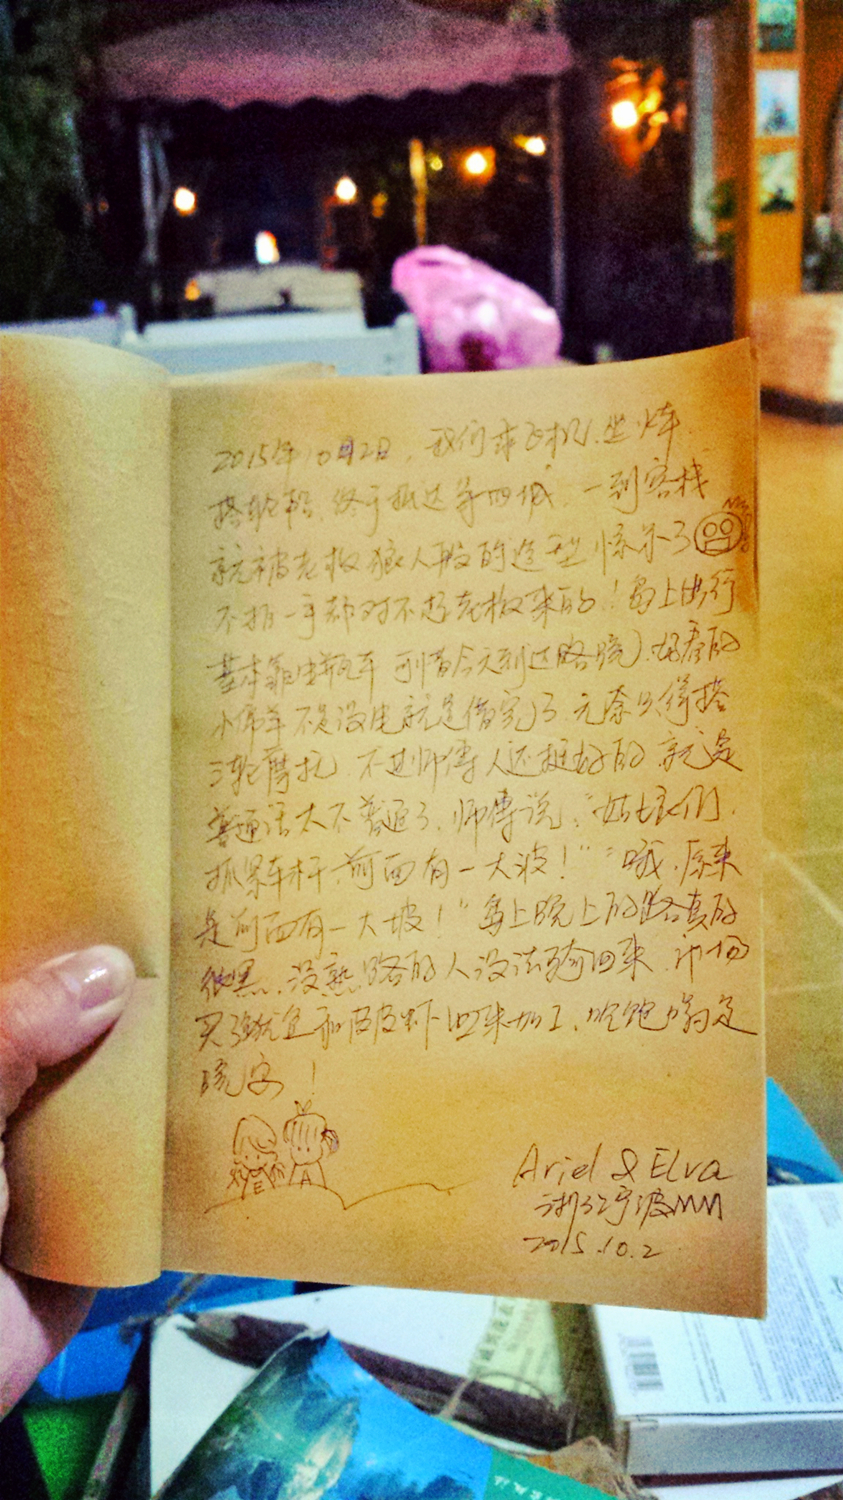 2015年10月2日，我们乘飞机、坐火车、
搭轮船，终于抵达等四城，一到客栈
就被老板狼人般的造型惊呆了
不拍一手都对不起老板来的！岛上出行
基本靠电瓶车 可惜今天到达略晚），好看的
小电车不是没电就是借完了，无奈只得搭
三轮摩托，不过师傅人还挺好的，就是
普通话太不普通了，师傅说：“姑娘们，
抓紧车杆，前面有一大波！”“哦，原来
是前面有一大坡！”岛上晚上的路真的
很黑，没熟路的人没法骑回来，市场
买了鱿鱼和皮皮虾回来加工，吃饱喝足
晚安！
E A
Ariel & Elva
浙江宁波MM
2015.10.2